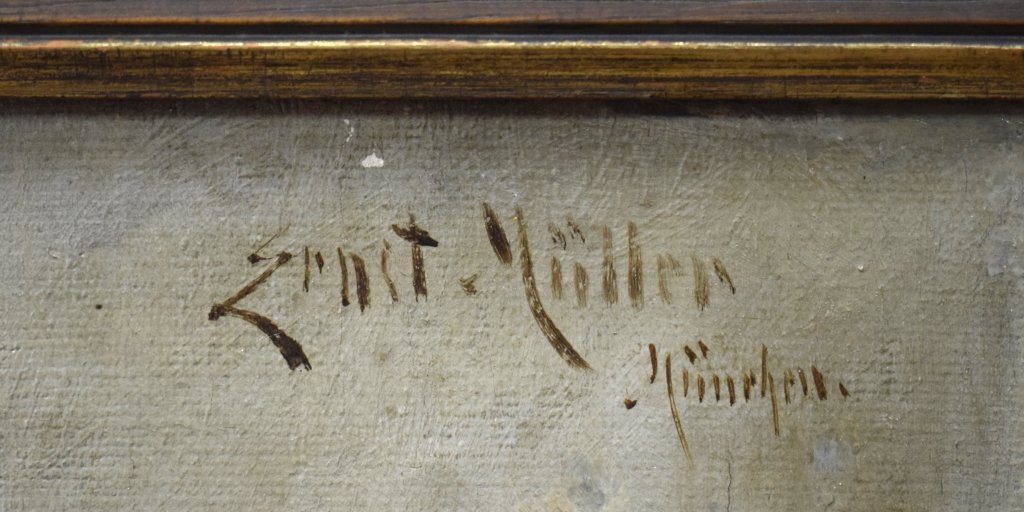 Ernst Müller
München.